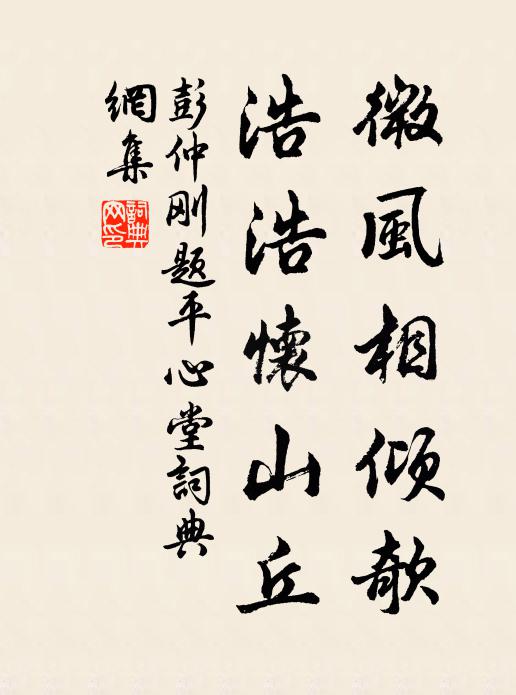 微風相傾欹
浩浩懷山丘
彭仲刚題平心堂詞典
網集
詞典網印